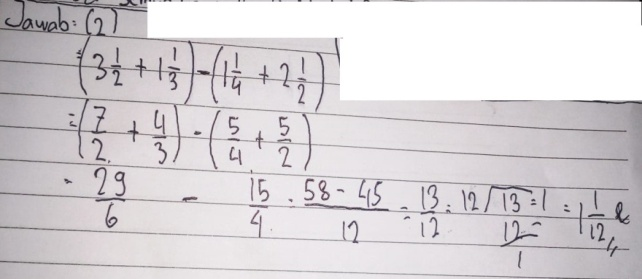 Jawab: (2)
= (3 1/2 + 1 1/3) - (1 1/4 + 2 1/2)
= (7/2 + 4/3) - (5/4 + 5/2)
= 29/6 - 15/4 = 58 - 45/12 = 13/12 = 12√13 = 1 = 1 1/12 l
12 -
1